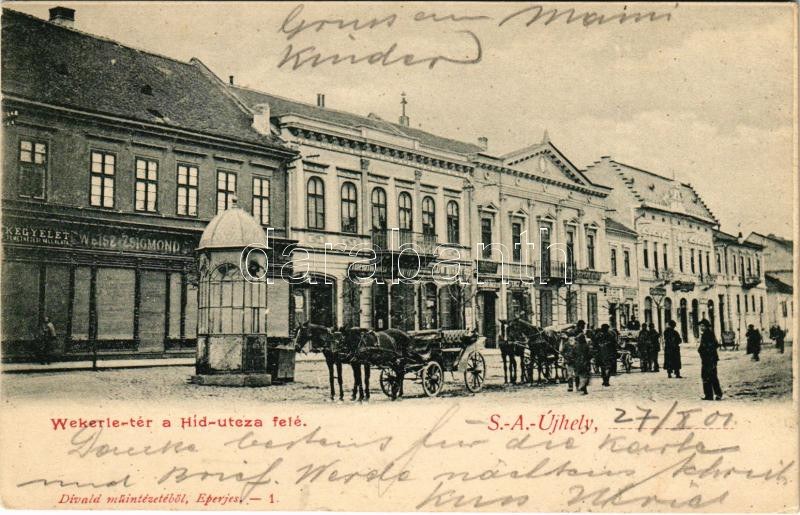 Gruss an Mami
Kinder
KEGYELET
WEISZ ZSIGMOND
darabanth
Wekerle-tér a Híd-utcza felé.
S.-A.-Újhely, 27/X 01
Danke bestens für die Karte
und Brief. Werde nächstens schreib
Kuss
Divald műintézetéből, Eperjes. — 1.